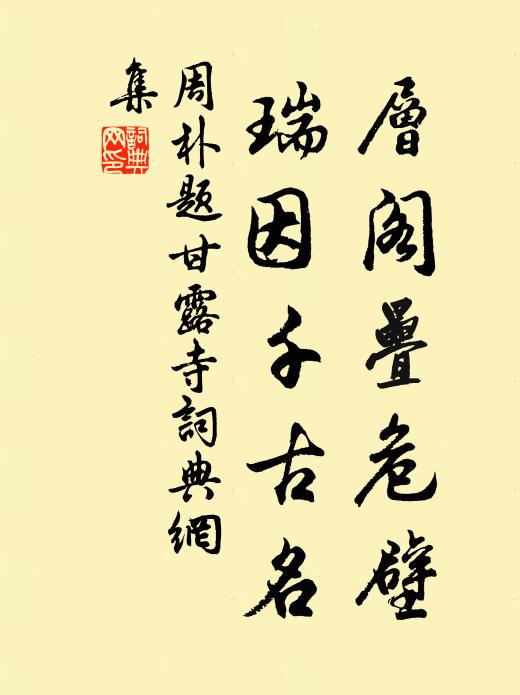 層閣疊危壁
瑞因千古名
周朴題甘露寺詞典網
集
詞典
网印